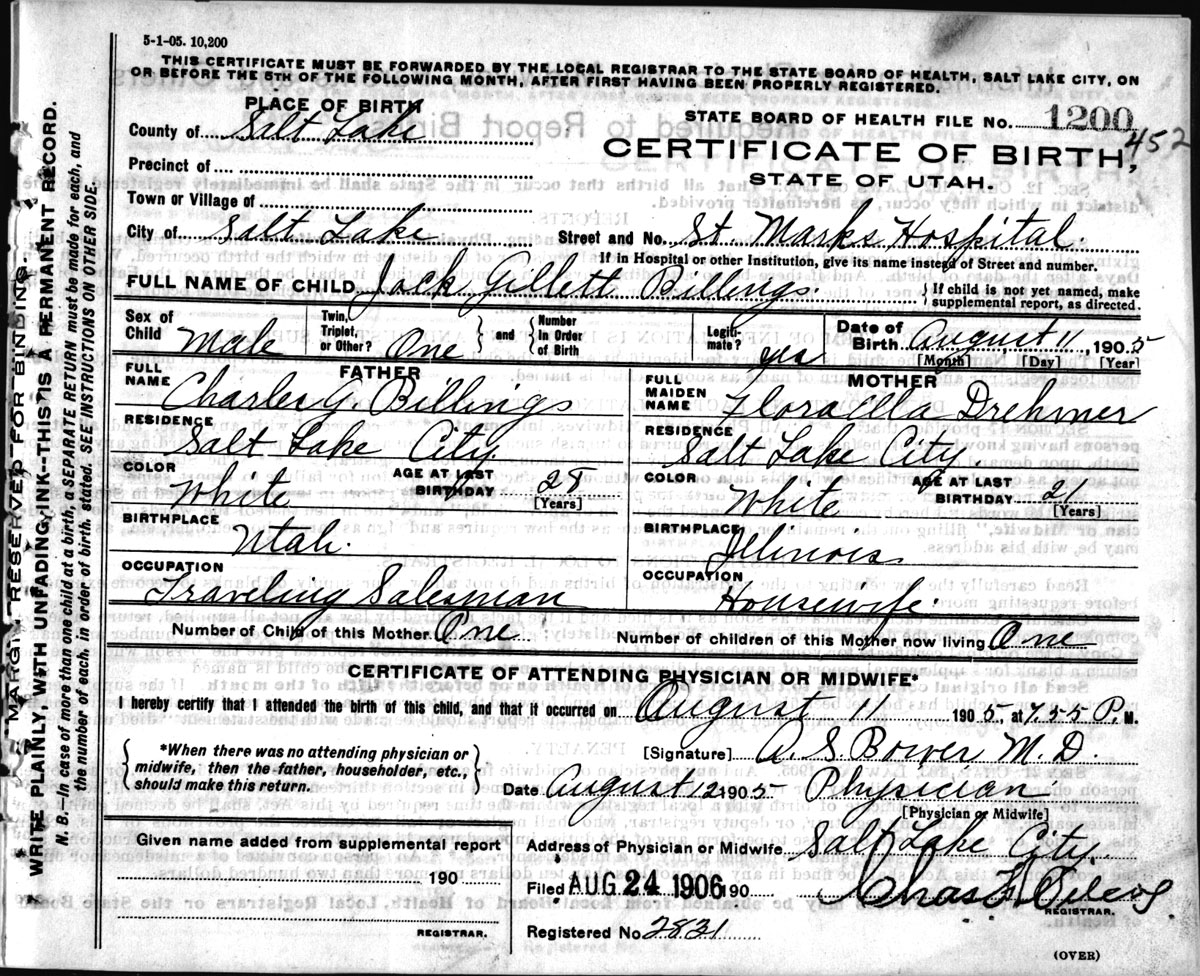 5-1-05. 10,200
THIS CERTIFICATE MUST BE FORWARDED BY THE LOCAL REGISTRAR TO THE STATE BOARD OF HEALTH, SALT LAKE CITY, ON
OR BEFORE THE 5TH OF THE FOLLOWING MONTH, AFTER FIRST HAVING BEEN PROPERLY REGISTERED.
PLACE OF BIRTH
STATE BOARD OF HEALTH FILE NO. 1200
452
County of Salt Lake
CERTIFICATE OF BIRTH,
Precinct of
STATE OF UTAH.
Town or Village of
City of Salt Lake Street and No. St Marks Hospital.
If in Hospital or other Institution, give its name instead of Street and number.
FULL NAME OF CHILD Jack Gillett Billings. { If child is not yet named, make supplemental report, as directed.
Sex of Child Male Twin, Triplet, or Other? One and Number In Order of Birth Legiti-mate? yes Date of Birth August 11, 1905
[Month] [Day] [Year]
FATHER
FULL NAME Charles G. Billings
RESIDENCE Salt Lake City.
COLOR White AGE AT LAST BIRTHDAY [Years]
BIRTHPLACE Utah.
OCCUPATION Traveling Salesman
MOTHER
FULL MAIDEN NAME Flora Ella Drehmer
RESIDENCE Salt Lake City.
COLOR White AGE AT LAST BIRTHDAY 21 [Years]
BIRTHPLACE Illinois
OCCUPATION Housewife.
Number of Child of this Mother One Number of children of this Mother now living One
CERTIFICATE OF ATTENDING PHYSICIAN OR MIDWIFE*
I hereby certify that I attended the birth of this child, and that it occurred on August 11 1905, at 7.55 P. M.
*When there was no attending physician or
midwife, then the father, householder, etc.,
should make this return.
[Signature] A. S. Bower M.D.
Date August 12 1905- Physician
[Physician or Midwife]
Given name added from supplemental report
190
REGISTRAR.
Address of Physician or Midwife Salt Lake City.
Filed AUG 24 1906 190 Chas
REGISTRAR.
Registered No. 2821
(OVER)
MARGIN RESERVED FOR BINDING.
WRITE PLAINLY, WITH UNFADING INK--THIS IS A PERMANENT RECORD.
N. B.--In case of more than one child at a birth, a SEPARATE RETURN must be made for each, and
the number of each, in order of birth, stated. SEE INSTRUCTIONS ON OTHER SIDE.